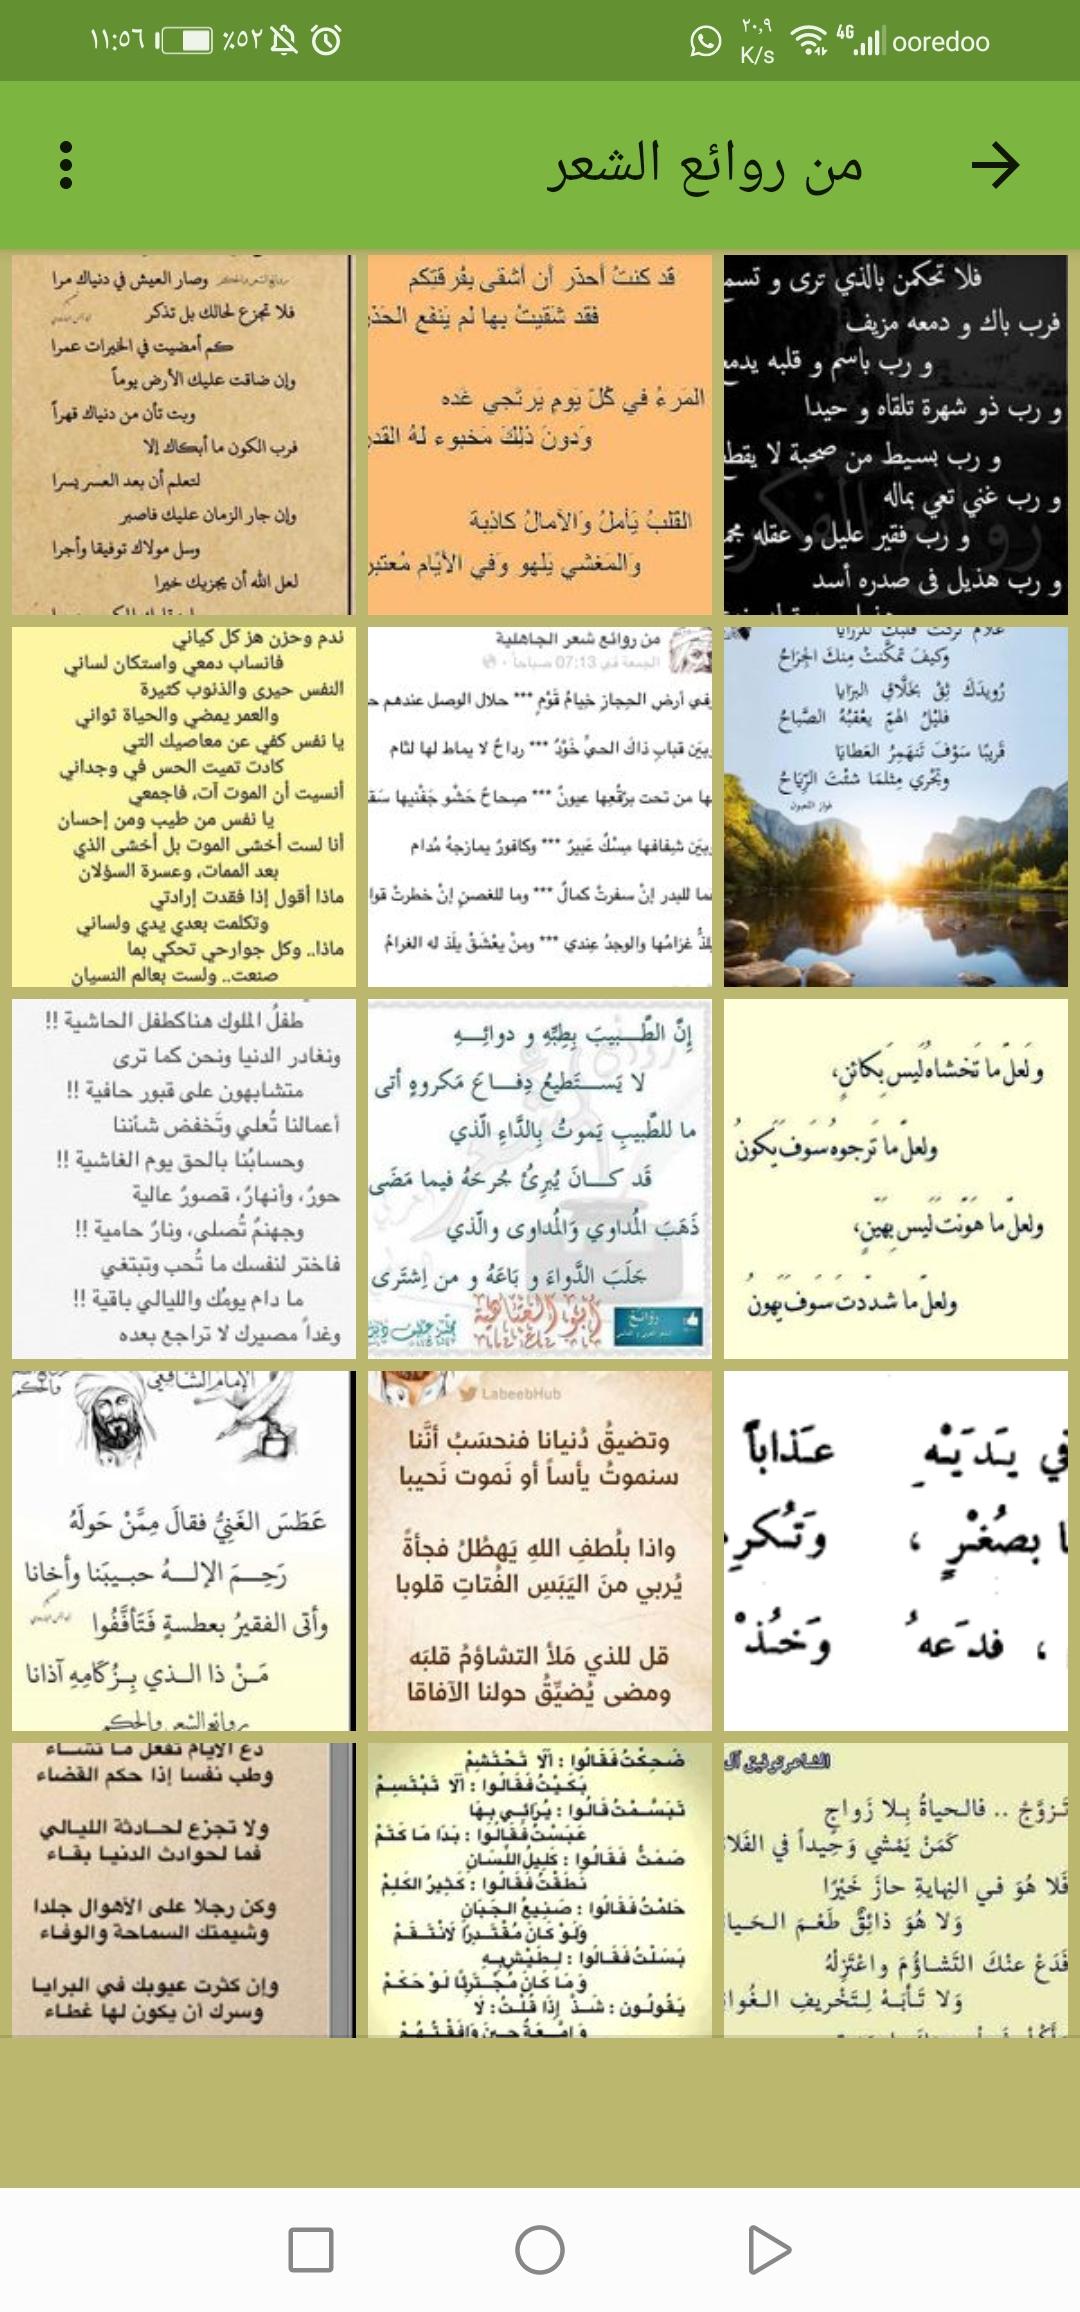 ١١:٥٦ ٪٥٢ ٢٠,٩ K/s 4G ooredoo
من روائع الشعر
فلا تحكمن بالذي ترى و تسم
فرب باك و دمعه مزيف
و رب باسم و قلبه يدمع
و رب ذو شهرة تلقاه و حيدا
و رب بسيط من صحبة لا يقط
و رب غني تعي بماله
و رب فقير عليل و عقله مج
و رب هذيل فى صدره أسد
قد كنتُ أحذر أن أشقى بفُرقتِكم
فقد شقيتُ بها لم يَنفع الحذر
المَرءُ في كُلّ يَومٍ يَرتَجي غَده
وَدونَ ذلِكَ مَخبوء لهُ القدر
القَلبُ يَأملُ وَالآمالُ كاذِبة
وَالمَغشي يَلهو وَفي الأيّام مُعتبر
وصار العيش في دنياك مرا
فلا تجزع لحالك بل تذكر
كم أمضيت في الخيرات عمرا
وإن ضاقت عليك الأرض يوماً
وبت تأن من دنياك قهراً
فرب الكون ما أبكاك إلا
لتعلم أن بعد العسر يسرا
وإن جار الزمان عليك فاصبر
وسل مولاك توفيقا وأجرا
لعل الله أن يجزيك خيرا
وكيفَ تمكَّنتْ مِنكَ الجِرَاحُ
رُويدَكَ ثِقْ بخَلَّاقِ البرَايا
فليْلُ الهمّ يعْقبُهُ الصَّباحُ
قَريبًا سَوْفَ تَنهَمِرُ العَطايا
وتَجْري مِثلمَا شئْتَ الرِّيَاحُ
فواز اللعبون
من روائع شعر الجاهلية
الجمعة في 07:13 صباحاً
وفي أرض الحِجازِ خِيامُ قَوْمٍ *** حلال الوصل عندهم ح
وبيَن قبابِ ذاكَ الحيِّ خَوْدٌ *** رداحٌ لا يماط لها لثام
لها من تحت برْقُعِها عيونٌ *** صِحاحٌ حَشْو جَفْنيها سَق
وبيَن شِفافها مِسْكٌ عَبيرٌ *** وكافورٌ يمازجهُ مُدام
فما للبدر إنْ سفرتْ كمالٌ *** وما للغصنِ إنْ خطرتْ قوا
يلذُّ غرَامُها والوجدُ عِندي *** ومنْ يعْشَقْ يلَذ له الغرامُ
ندم وحزن هز كل كياني
فانساب دمعي واستكان لساني
النفس حيرى والذنوب كثيرة
والعمر يمضي والحياة ثواني
يا نفس كفي عن معاصيك التي
كادت تميت الحس في وجداني
أنسيت أن الموت آت، فاجمعي
يا نفس من طيب ومن إحسان
أنا لست أخشى الموت بل أخشى الذي
بعد الممات، وعسرة السؤلان
ماذا أقول إذا فقدت إرادتي
وتكلمت بعدي يدي ولساني
ماذا.. وكل جوارحي تحكي بما
صنعت.. ولست بعالم النسيان
ولَعلّ ما تَخشاه لَيس بِكائنٍ،
ولعلّ ما تَرجوه سَوف يَكونُ
ولعلّ ما هَوّنت لَيس بِهينٍ،
ولعلّ ما شددت سَوف يَهونُ
إنَّ الطَّـبيبَ بِطِبِّهِ و دوائِـهِ
لا يَسـتَطيعُ دِفـاعَ مَكروهٍ أتى
ما للطَّبيبِ يَموتُ بِالدَّاءِ الَّذي
قَد كـانَ يُبرِئُ جُرحَهُ فيما مَضَى
ذَهَبَ المُداوي وَالمُداوى والَّذي
جَلَبَ الدَّواءَ و بَاعَهُ و من اِشتَرى
أبو العتاهية
روائع
طفلُ الملوك هناكطفل الحاشية !!
ونغادر الدنيا ونحن كما ترى
متشابهون على قبور حافية !!
أعمالنا تُعلي وتَخفض شأننا
وحسابُنا بالحق يوم الغاشية !!
حورٌ، وأنهارٌ، قصورٌ عالية
وجهنمٌ تُصلى، ونارٌ حامية !!
فاختر لنفسك ما تُحب وتبتغي
ما دام يومُك والليالي باقية !!
وغداً مصيرك لا تراجع بعده
في يَدَيْهِ عـذاباً
بصُغْرٍ ، وَتُكرِ
، فدَعهُ وَخُذْ
LabeebHub
وتضيقُ دُنيانا فنحسَبُ أنَّنا
سنموتُ يأساً أو نَموت نَحيبا
واذا بلُطفِ اللهِ يَهطُلُ فجأةً
يُربي منَ اليَبَسِ الفُتاتِ قلوبا
قل للذي مَلأ التشاؤمُ قلبَه
ومضى يُضيِّقُ حولنا الآفاقا
الإمام الشافعي
عَطَسَ الغَنِيُّ فقالَ مِمَّنْ حَولَهُ
رَحِـمَ الإلـهُ حبـيبَنا وأخانا
وأتى الفقيرُ بعطسةٍ فَتَأفَّفُوا
مَـنْ ذا الـذي بِـزُكَامِهِ آذانا
روائع الشعر والحكم
الشاعر توفيق آل
تَـزوَّجْ .. فالـحياةُ بِـلا زَواجٍ
كَمَنْ يَمْشي وَحِيداً في الفَلا
فَلا هُوَ فـي النِهايةِ حازَ خَيْرًا
وَلا هُوَ ذائِقٌ طَعْـمَ الـحَيا
فَدَعْ عنْكَ التَشاؤُمَ واعْتَزِلْهُ
وَلا تَـأبَـهْ لِـتَخْريفِ الـغُوا
ضَحِكْتُ فَقَالُوا : أَلَا تَحْتَشِمْ
بَكَيْتُ فَقَالُوا : أَلَا تَبْتَسِمْ
تَبَسَّمْتُ قَالُوا : يُرَائِي بِهَا
عَبَسْتُ فَقَالُوا : بَدَا مَا كَتَمْ
صَمَتُّ فَقَالُوا : كَلِيلُ اللِّسَانِ
نَطَقْتُ فَقَالُوا : كَثِيرُ الكَلِمْ
حَلِمْتُ فَقَالُوا : صَنِيعُ الجَبَانِ
وَلَوْ كَانَ مُقْتَدِرًا لَانْتَقَمْ
بَسَلْتُ فَقَالُوا : لِطَيْشٍ بِهِ
وَمَا كَانَ مُجْتَرِئًا لَوْ حَكَمْ
يَقُولُونَ : شَذَّ إِذَا قُلْتُ : لَا
وَإِمَّعَةً حِينَ وَافَقْتُهُمْ
دع الأيام تفعل ما تشاء
وطب نفسا إذا حكم القضاء
ولا تجزع لحادثة الليالي
فما لحوادث الدنيا بقاء
وكن رجلا على الأهوال جلدا
وشيمتك السماحة والوفاء
وإن كثرت عيوبك في البرايا
وسرك أن يكون لها غطاء